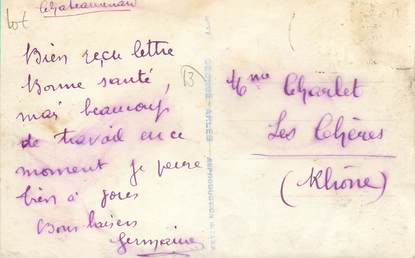 Lot
Bien reçu lettre
Bonne santé,
mais beaucoup
de travail en ce
moment je pense
bien à
Bons baisers
Germaine
13
Mme Charlet
Les Chères
(Rhône)